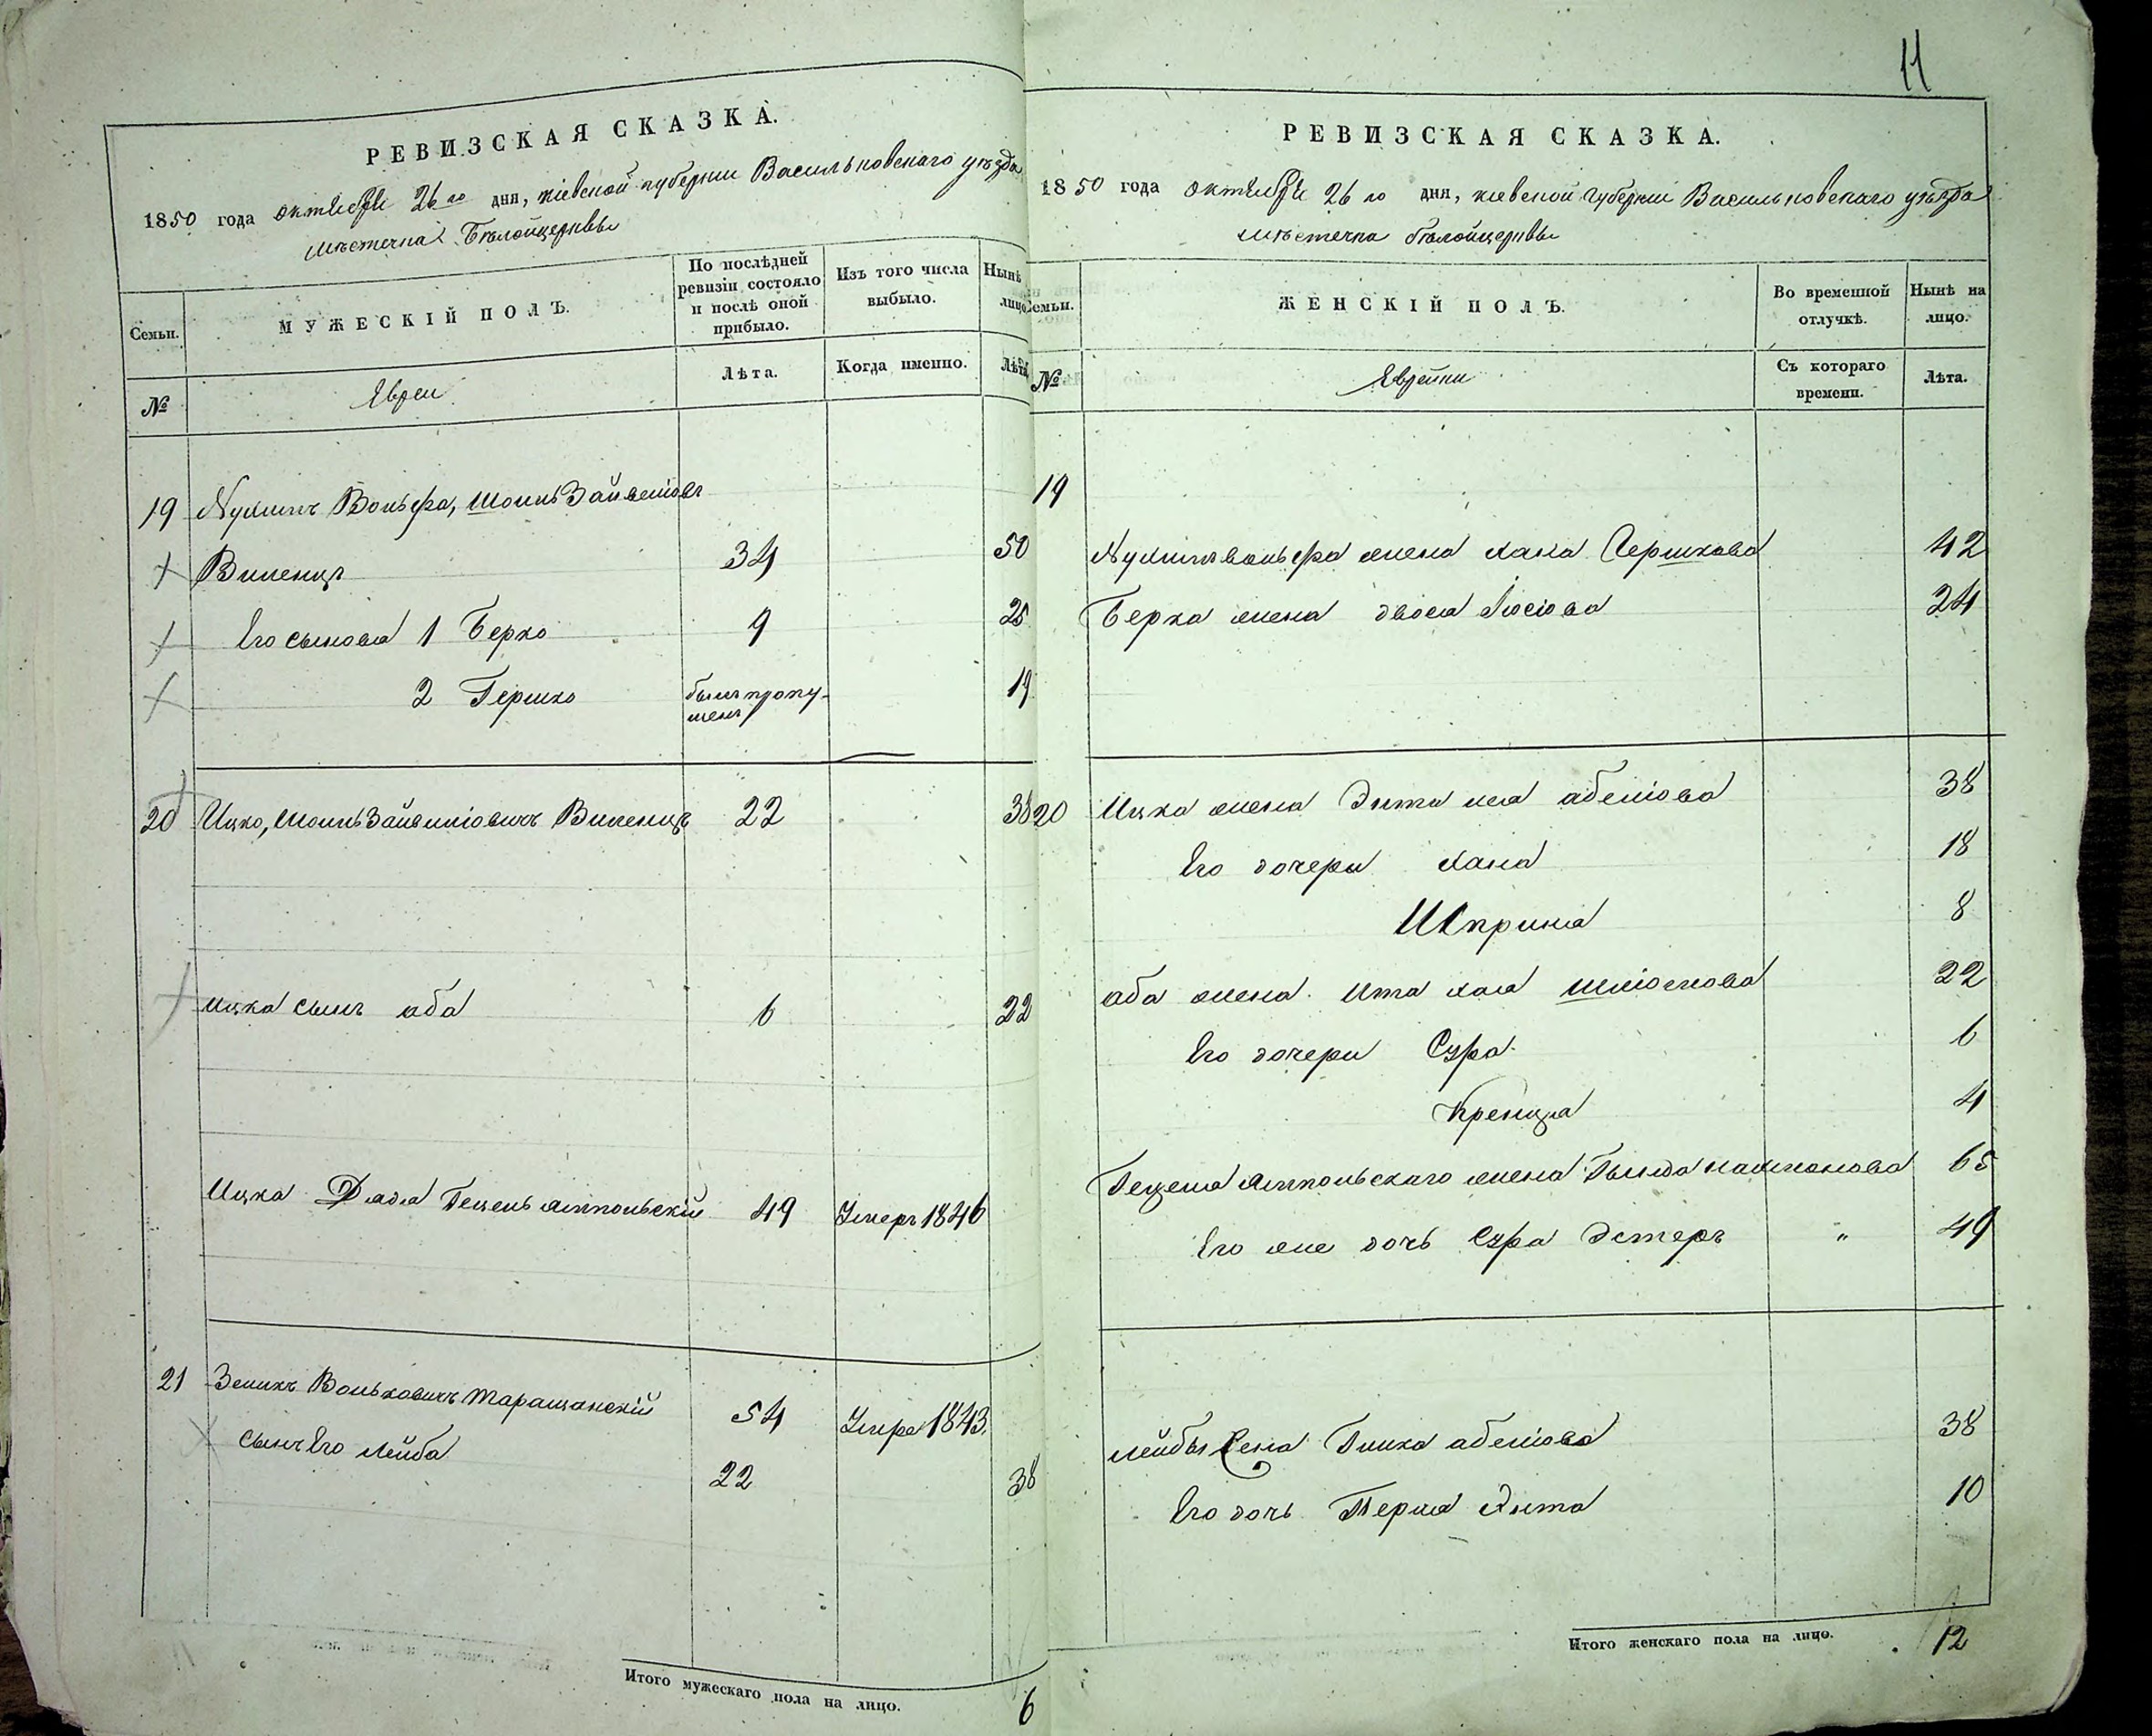 РЕВИЗСКАЯ СКАЗКА.
1850 года октября 26 го дня, кіевской губерніи Васильковскаго уѣзда
мѣстечка Бѣлойцерквы
Семьи.
МУЖЕСКІЙ ПОЛЪ.
По послѣдней ревизіи состояло и послѣ оной прибыло.
Изъ того числа выбыло.
Нынѣ лицо
№
Евреи
Лѣта.
Когда именно.
Лѣта
19 Вольфа, Шоилъ Зайвеліовъ
Виленцъ 34 50
Его сыновья 1 Берко 9 25
2 Гершко былъ пропущенъ 19
20 Ицко, Шоилъ Зайвеліовичъ Виленцъ 22 38
Ицка сынъ аба 6 22
Ицка Дядя Гецель Ямпольскій 49 Умеръ 1846
21 Зеликъ Вольковичъ Таращанскій 54 Умеръ 1843
сынъ Его Лейба 22 38
Итого мужескаго пола на лицо. 6
11
РЕВИЗСКАЯ СКАЗКА.
1850 года октября 26 го дня, кіевской губерніи Васильковскаго уѣзда
мѣстечка бѣлойцерквы
Семьи.
ЖЕНСКІЙ ПОЛЪ.
Во временной отлучкѣ.
Нынѣ на лицо.
№
Еврейки
Съ котораго времени.
Лѣта.
19
вольфа жена хана Гершкова 42
Берка жена двося Іосіова 24
20 Ицка жена абеліова 38
Его дочери хана 18
Шприна 8
аба жена Ита хая Шліомова 22
Его дочери Сура 6
Кренця 4
Гецеля Ямпольскаго жена 65
Его же дочь Сура Эстеръ " 49
лейбы жена абеліова 38
Его дочь Перля 10
Итого женскаго пола на лицо. 12